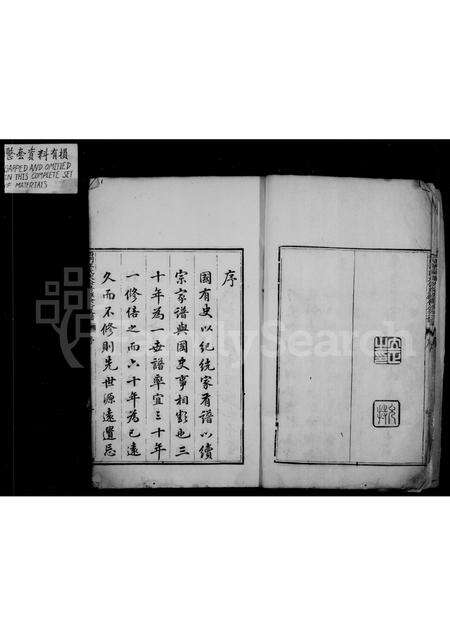 整套資料有損
DAMAGED AND OMITTED
IN THIS COMPLETE SET
OF MATERIALS
序
國有史以紀統家有譜以續
宗家譜與國史事相類也三
十年為一世譜率宜三十年
一修倍之而六十年為已遠
久而不修則先世源遠遺忘
FamilySearch